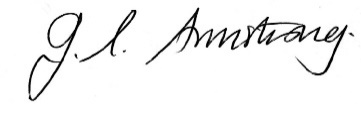 G. L. Armstrong.